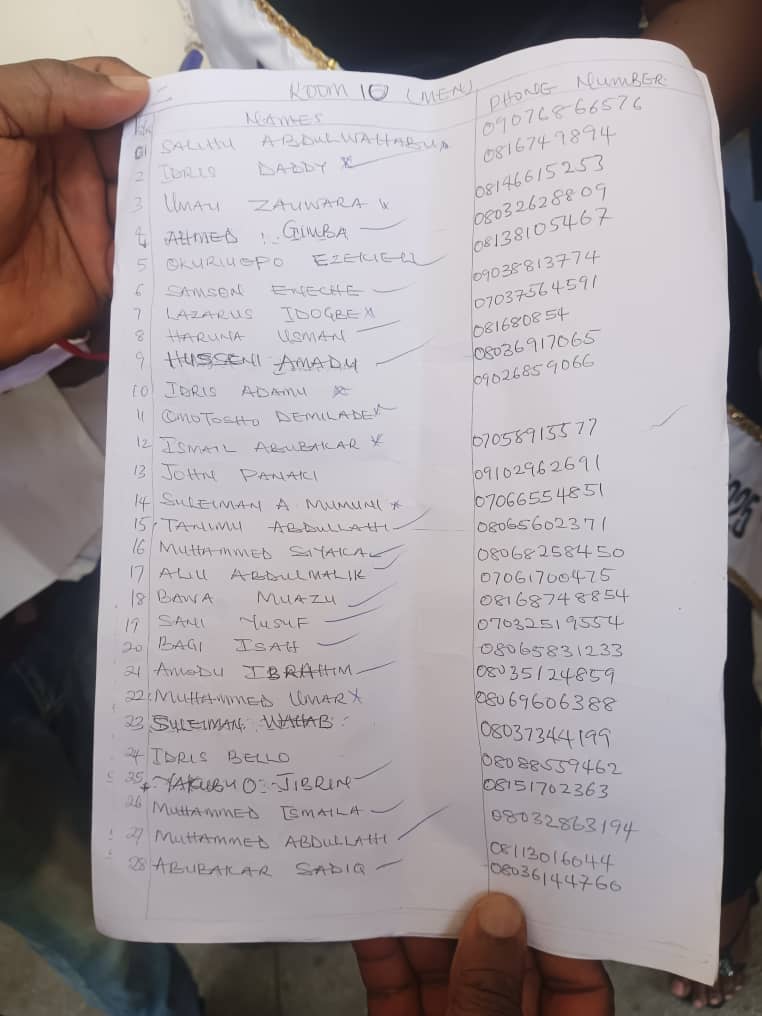 ROOM 10 (MEN)
NAMES PHONE NUMBER
01 SALIHU ABDULWAHABU 09076866576
2 IDRIS DADDY 0816749894
3 UMAR ZAUWARA 08146615253
4 AHMED GIMBA 08032628809
5 OKURIUOPO EZEKIEL 08138105467
6 SAMSON ENECHE 09038813774
7 LAZARUS IDOGBE 07037564591
8 HARUNA USMAN 081680854
9 HUSSENI AMADU 08036917065
10 IDRIS ADAMU 09026859066
11 OMOTOSHO DEMILADE
12 ISMAIL ABUBAKAR 07058915577
13 JOHN PANAKI 09102962691
14 SULEIMAN A. MUMUNI 07066554851
15 TANIMU ABDULLAHI 08065602371
16 MUHAMMED SIYAKA 08068258450
17 ALIU ABDULMALIK 07061700475
18 BAWA MUAZU 08168748854
19 SANI YUSUF 07032519554
20 BAGI ISAH 08065831233
21 AMODU IBRAHIM 08035124859
22 MUHAMMED UMAR 08069606388
23 SULEIMAN WAHAB 08037344199
24 IDRIS BELLO 08088559462
25 YAKUBU O. JIBRIN 08151702363
26 MUHAMMED ISMAILA 08032863194
27 MUHAMMED ABDULLAHI 08113016044
28 ABUBAKAR SADIQ 08036144766